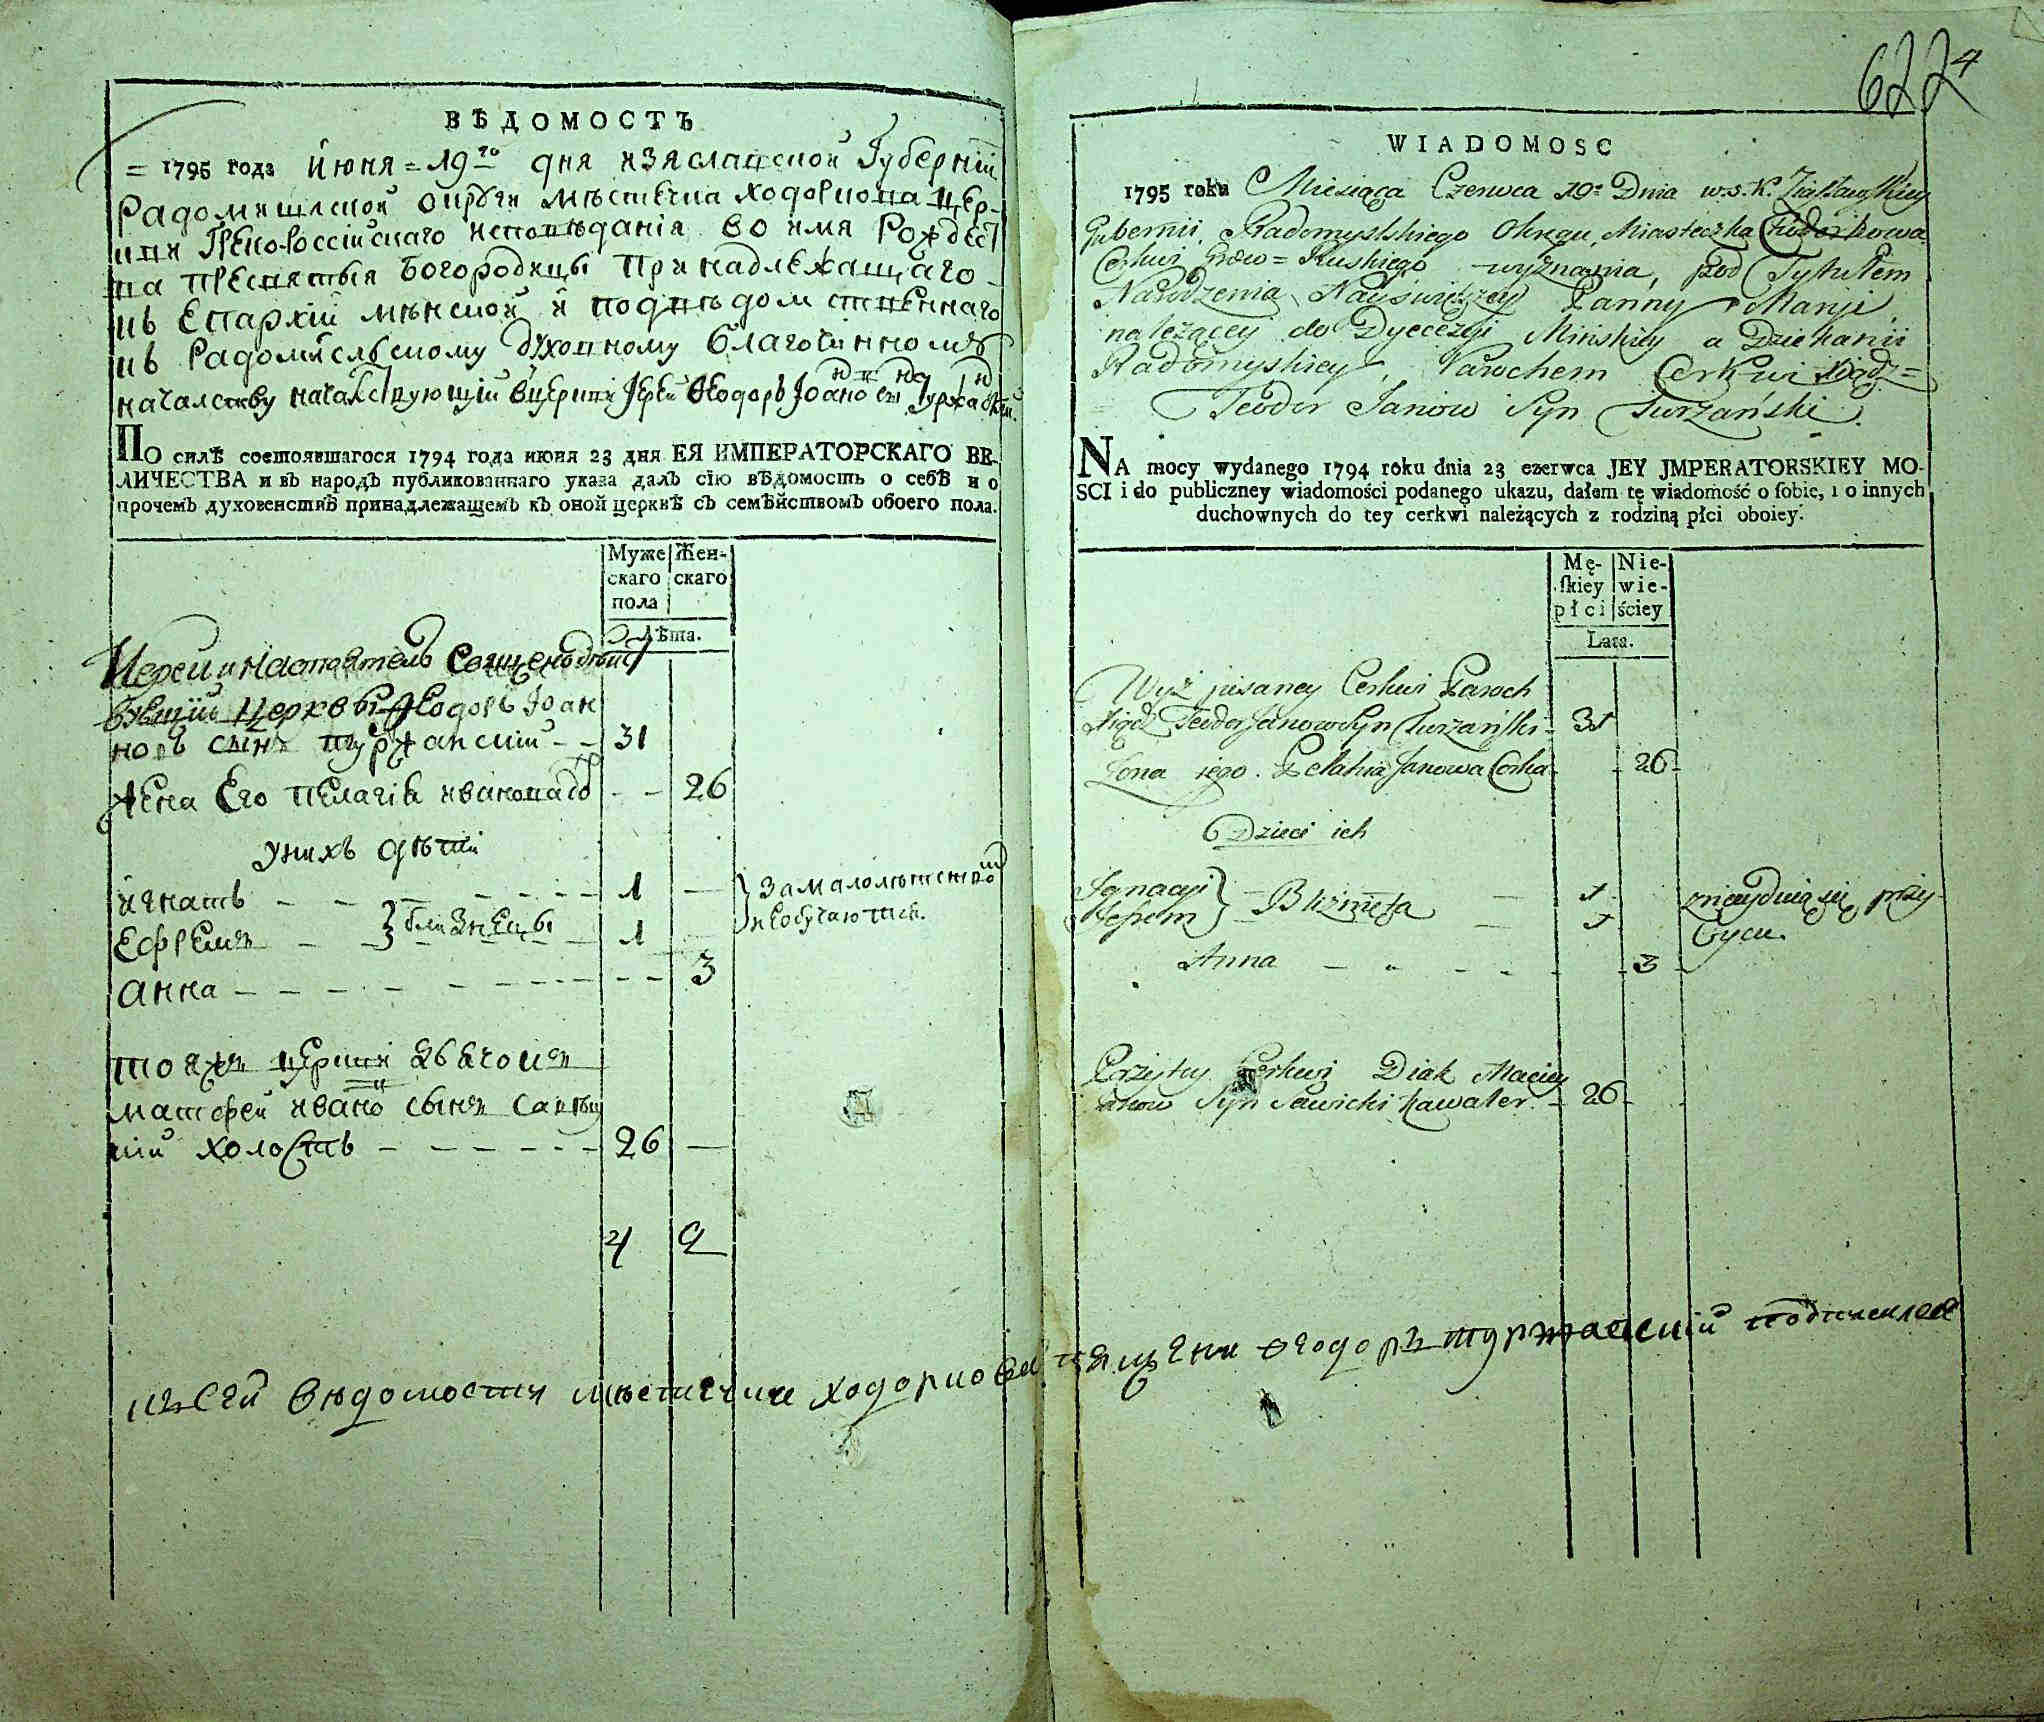 ВѢДОМОСТЪ
= 1795 года июня = 19го дня изяславской Губернїи
Радомишлской округи мѣстечка ходоркова цер-
кви Греко-Россїйскаго исповѣданія во имя Рождест
ва пресвятыя Богородицы принадлежащаго
къ Епархїи минской и подвѣдомственнаго
къ Радомислскому духовному благочинному
началству началствующїй вцеркви Іерей Ѳеодоръ Іоановъ сынъ Туржанскїй
ПО силѣ состоявшагося 1794 года июня 23 дня ЕЯ ИМПЕРАТОРСКАГО ВЕ-
ЛИЧЕСТВА и въ народъ публикованнаго указа далъ сїю вѣдомость о себѣ и о
прочемъ духовенствѣ принадлежащемъ къ оной церквѣ съ семѣйствомъ обоего пола.
Муже Жен-
скаго скаго
пола
Лѣта.
Иереи и Настоятель Священодѣйст
вующїй церквы Ѳеодоръ Іоан
новъ сынъ туржанский - - 31
жена Его пелагія иванова - - 26
унихъ дѣтїи
игнатъ - - - - - - 1 — замалолѣтствомъ
Ефремъ - - близнецы - - 1 — необучаются.
анна - - - - - - - - - - 3
тояжъ церкви дьячокъ
матфей ивановъ сынъ савиц
кїй холостъ - - - - - - 26 —
4 2
къ сей вѣдомости мѣстечка ходоркова священикъ ѳеодоръ туржанскїй подписался
622 4
WIADOMOSC
1795 roku Miesiąca Czerwca 19o Dnia w.s.K. Zasławskiey
Gubernii, Radomyslskiego Okręgu, Miasteczka Chodorkowa
Cerkwi Greko = Ruskiego wyznania, pod Tytułem
Narodzenia Nayświętszey Panny Maryi,
należącey do Dyecezyi Minskiey a Dziekanii
Radomyskiey, Parochem Cerkwi Xiądz =
Teodor Janow Syn Turzański.
NA mocy wydanego 1794 roku dnia 23 czerwca JEY JMPERATORSKIEY MO-
SCI i do publiczney wiadomości podanego ukazu, dałem tę wiadomość o sobie, i o innych
duchownych do tey cerkwi należących z rodziną płci oboiey.
Mę- Nie-
skiey wie-
płci ściey
Lata.
Wyż pisaney Cerkwi Paroch
Xiądz Teodor Janow Syn Turzański - 31
Zona jego Pelahia Janowa Corka - - 26 -
Dzieci ich
Ignacyi 1
Jefrem } Bliznięta 1
znieydują się przy
życu.
Anna - - - - - 3 -
Przytey Cerkwi Diak Maciey
Janow Syn Sawicki Kawaler - 26 -